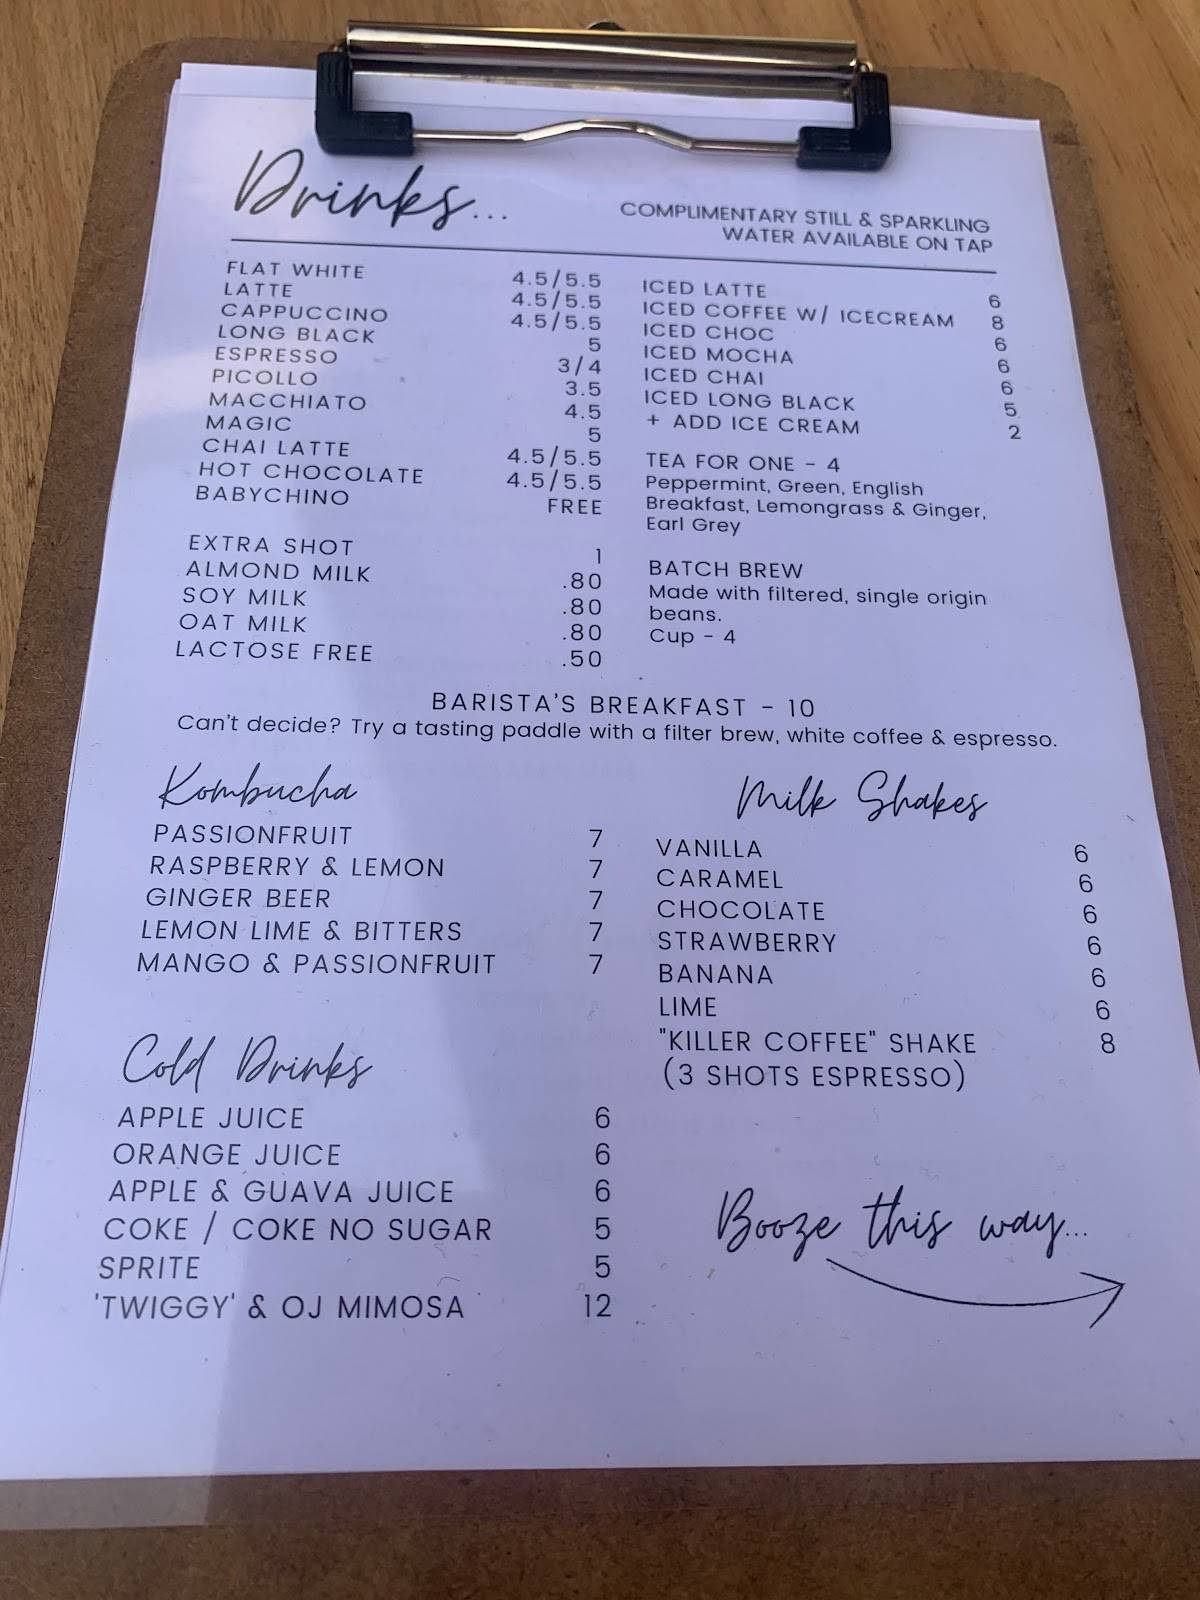 Drinks...
COMPLIMENTARY STILL & SPARKLING
WATER AVAILABLE ON TAP
FLAT WHITE 4.5/5.5
LATTE 4.5/5.5
CAPPUCCINO 4.5/5.5
LONG BLACK 5
ESPRESSO 3/4
PICOLLO 3.5
MACCHIATO 4.5
MAGIC 5
CHAI LATTE 4.5/5.5
HOT CHOCOLATE 4.5/5.5
BABYCHINO FREE
EXTRA SHOT 1
ALMOND MILK .80
SOY MILK .80
OAT MILK .80
LACTOSE FREE .50
ICED LATTE 6
ICED COFFEE W/ ICECREAM 8
ICED CHOC 6
ICED MOCHA 6
ICED CHAI 6
ICED LONG BLACK 5
+ ADD ICE CREAM 2
TEA FOR ONE - 4
Peppermint, Green, English
Breakfast, Lemongrass & Ginger,
Earl Grey
BATCH BREW
Made with filtered, single origin
beans.
Cup - 4
BARISTA'S BREAKFAST - 10
Can't decide? Try a tasting paddle with a filter brew, white coffee & espresso.
Kombucha
PASSIONFRUIT 7
RASPBERRY & LEMON 7
GINGER BEER 7
LEMON LIME & BITTERS 7
MANGO & PASSIONFRUIT 7
Milk Shakes
VANILLA 6
CARAMEL 6
CHOCOLATE 6
STRAWBERRY 6
BANANA 6
LIME 6
"KILLER COFFEE" SHAKE 8
(3 SHOTS ESPRESSO)
Cold Drinks
APPLE JUICE 6
ORANGE JUICE 6
APPLE & GUAVA JUICE 6
COKE / COKE NO SUGAR 5
SPRITE 5
'TWIGGY' & OJ MIMOSA 12
Booze this way...